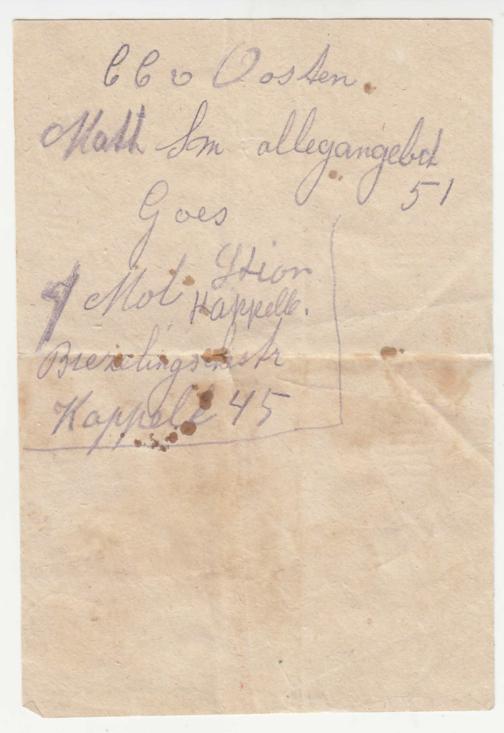 C C v Oosten.
Math Sm allegangebch
51
Goes
4 Mol. Stion
Kappelle.
Biezelingschestr
Kappele 45